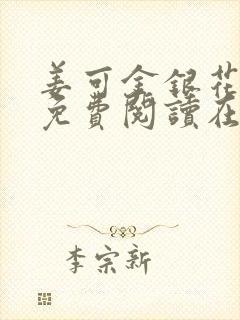 姜可金銀花
免費閱讀在
李宗新